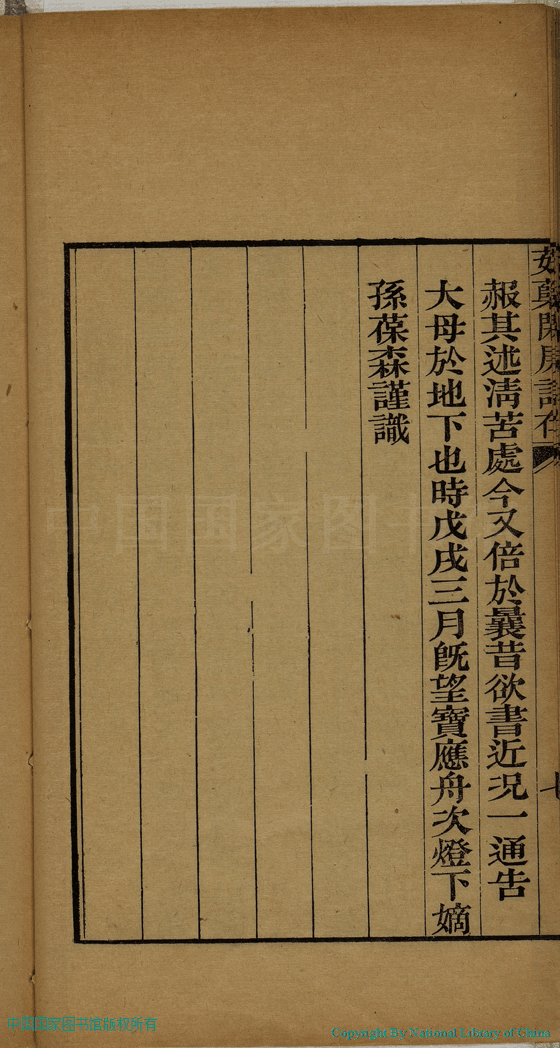 赧其述淸苦處今又倍於曩昔欲書近况一通吿
大母於地下也時戊戌三月旣望寶應舟次燈下嫡
孫葆森謹識
中国国家图书
中国国家图书馆版权所有
Copyright By National Library of China